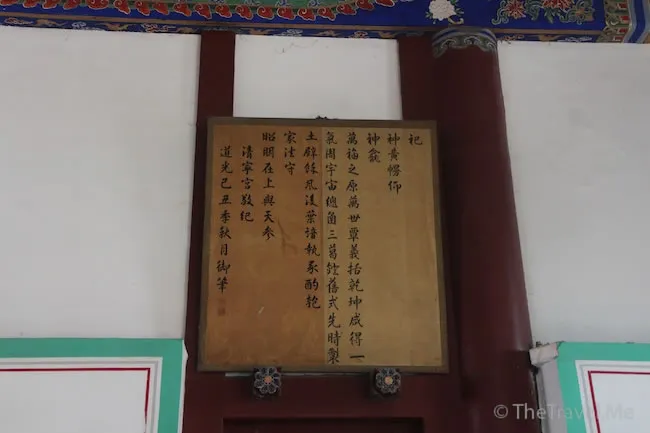 祀
神黄幔仰
神龕
萬福之原萬世覃義括乾坤咸得一
氣周宇宙總函三葛鐙舊式先時製
土壁餘風後葉諳執豕酌匏
家法守
昭明在上與天參
清寧宮敬紀
道光己丑季秋月御筆
© TheTravel.Me